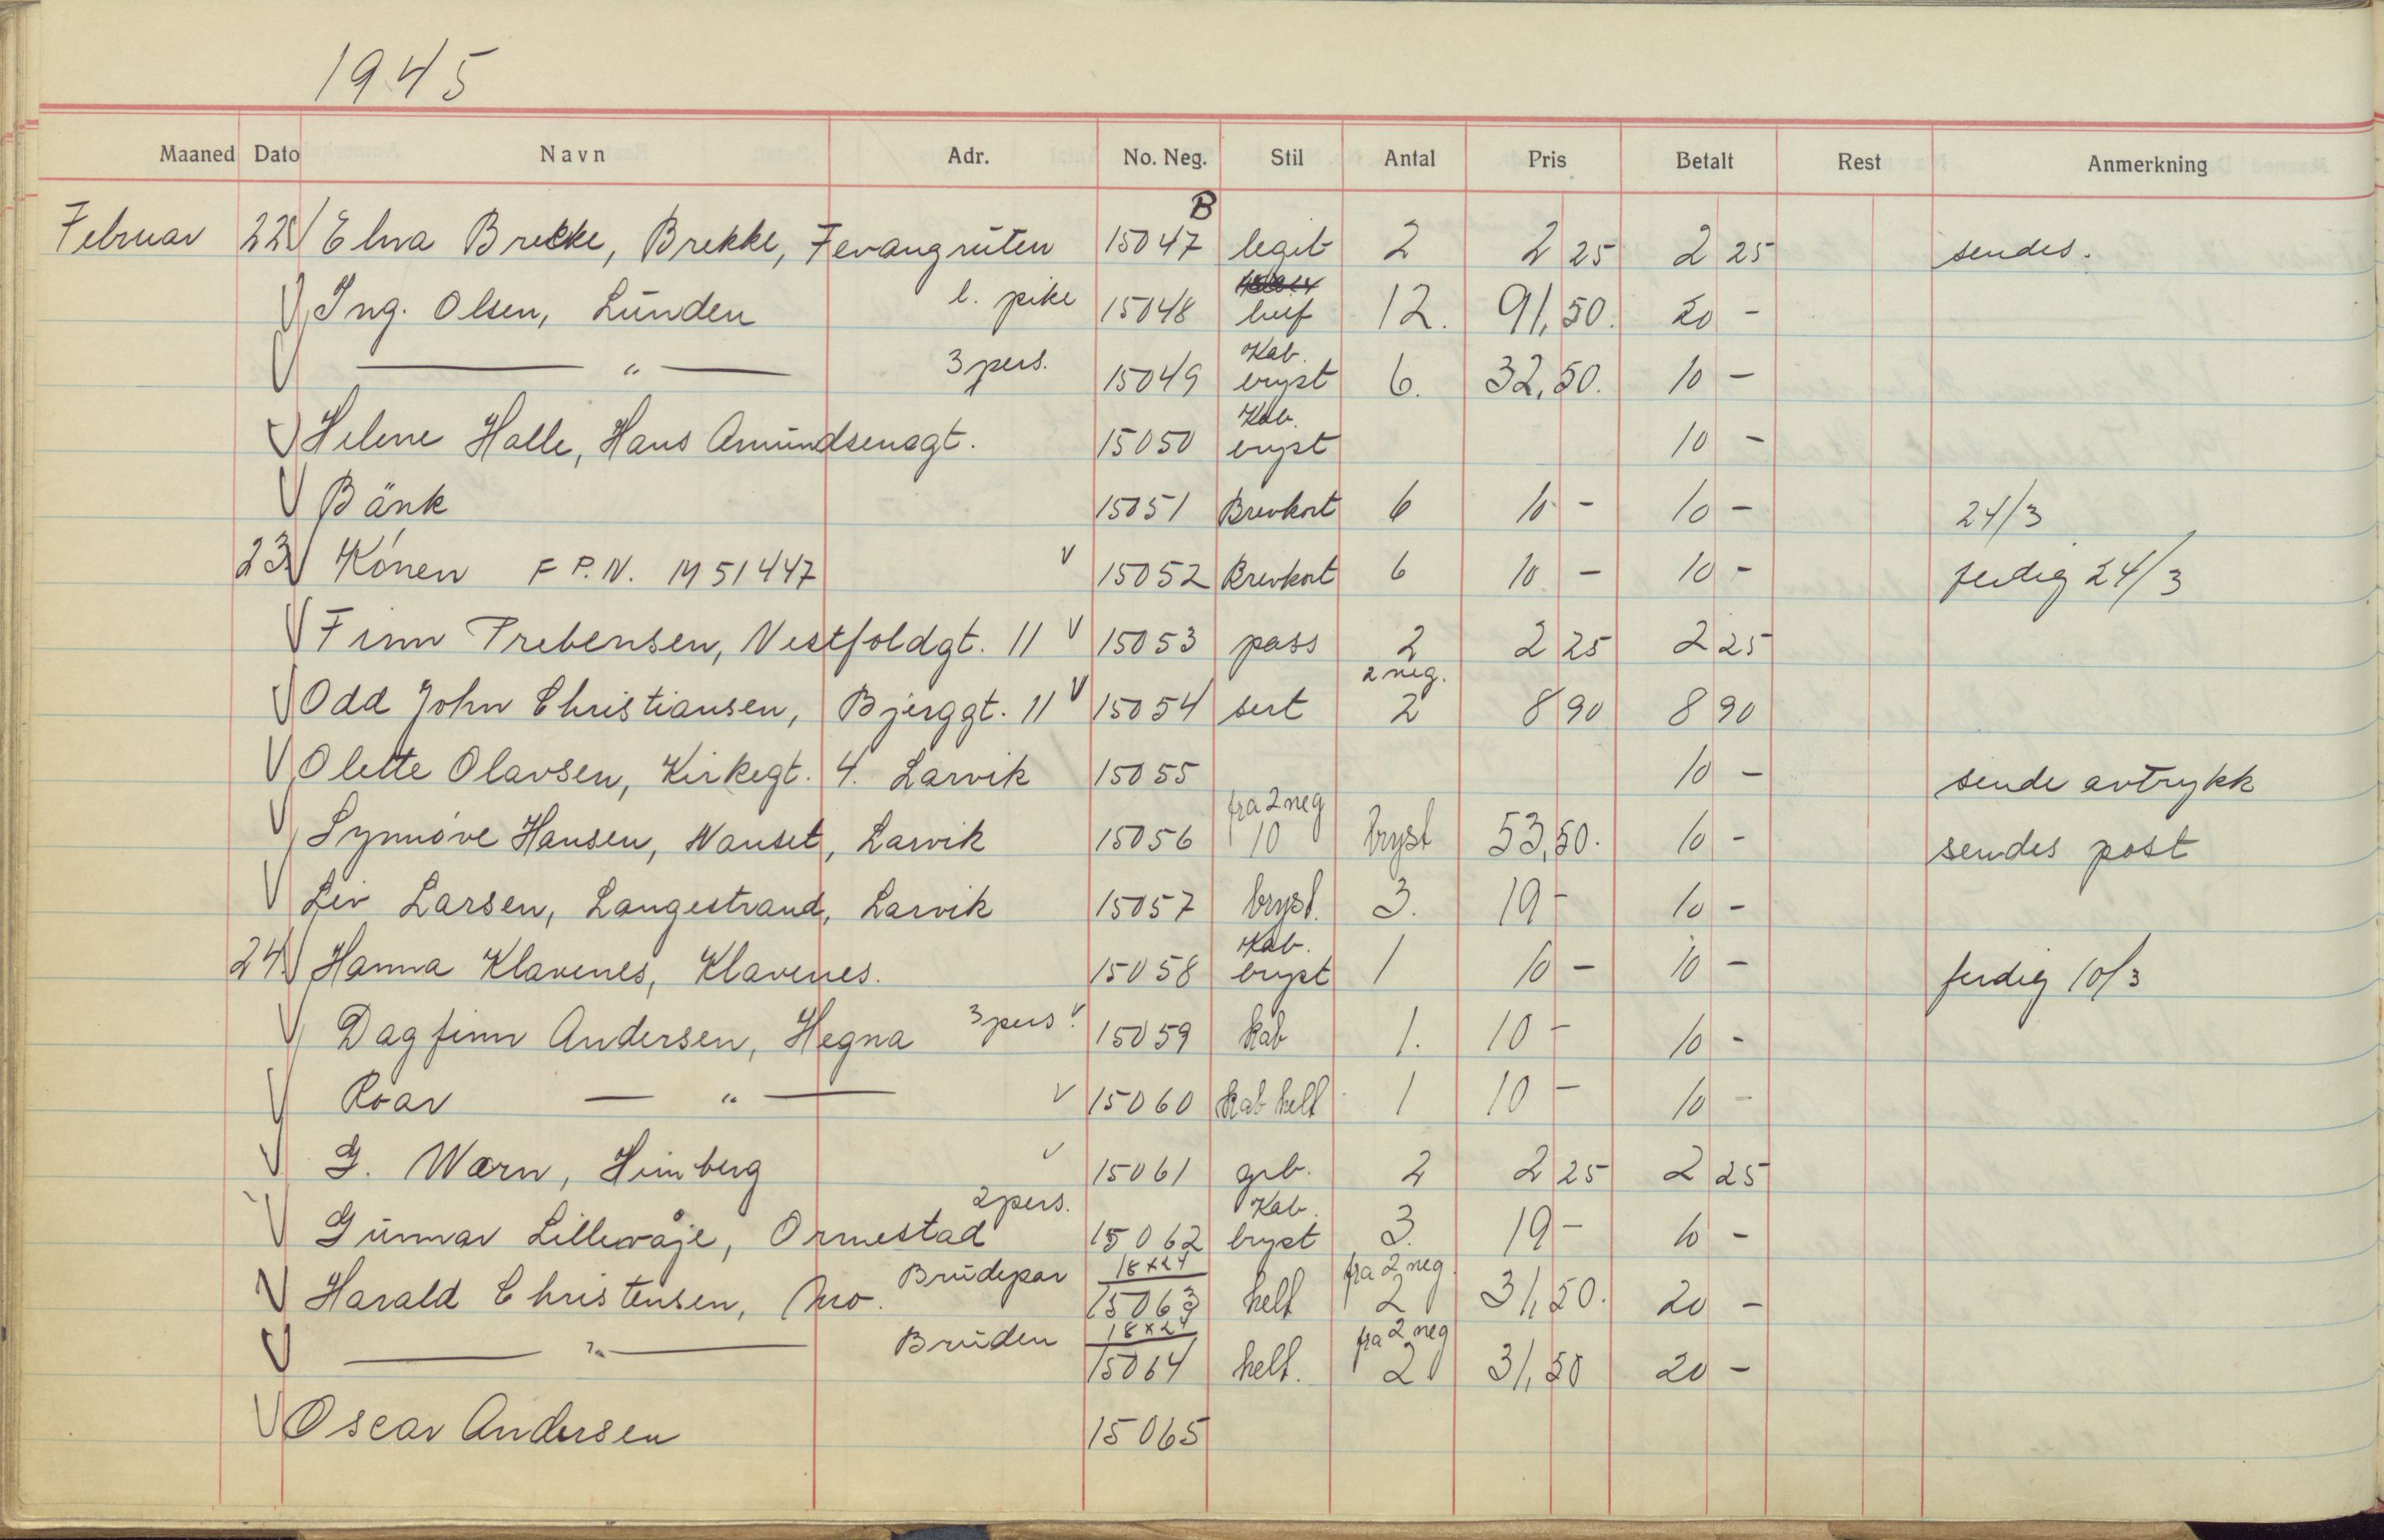 1945
Maaned Dato Navn Adr. No. Neg. Stil Antal Pris Betalt Rest Anmerkning
Februar 22 Elna Brekke, Brekke, Fevangruten 15047 B legit 2 2 25 2 25 sendes.
Ing. Olsen, Lunden l. pike 15048 12. 91,50. 20 -
— " — 3 pers. 15049 Kab. bryst 6. 32,50. 10 -
Helene Halle, Hans Amundsensgt. 15050 Kab. bryst 10 -
Bänk 15051 Brevkort 6 10 - 10 - 24/3
23 Könen F P. N. M 51447 15052 Brevkort 6 10 - 10 - ferdig 24/3
Finn Prebensen, Vestfoldgt. 11 15053 pass 2 2 25 2 25
Odd John Christiansen, Bjerggt. 11 15054 sert 2 neg. 2 8 90 8 90
Olette Olavsen, Kirkegt. 4. Larvik 15055 10 - sende avtrykk
Synnöve Hansen, Nanset, Larvik 15056 fra 2 neg 10 bryst 53,50. 10 - sendes post
Liv Larsen, Langestrand, Larvik 15057 bryst. 3. 19 - 10 -
24. Hanna Klavenes, Klavenes. 15058 Kab. bryst 1 10 - 10 - ferdig 10/3
Dagfinn Andersen, Hegna 3 pers. 15059 kab 1. 10 - 10 -
Roar — " — 15060 kab helf 1 10 - 10 -
G. Wærn, Himberg 15061 grb. 2 2 25 2 25
Gunnar Lillevåje, Ormestad 2 pers. 15062 Kab. bryst 3. 19 - 10 -
Harald Christensen, Mo. Brudepar 18x24 15063 helf fra 2 neg. 2 31,50. 20 -
— " — Bruden 18x24 15064 helf. fra 2 neg 2 31,50 20 -
Oscar Andersen 15065